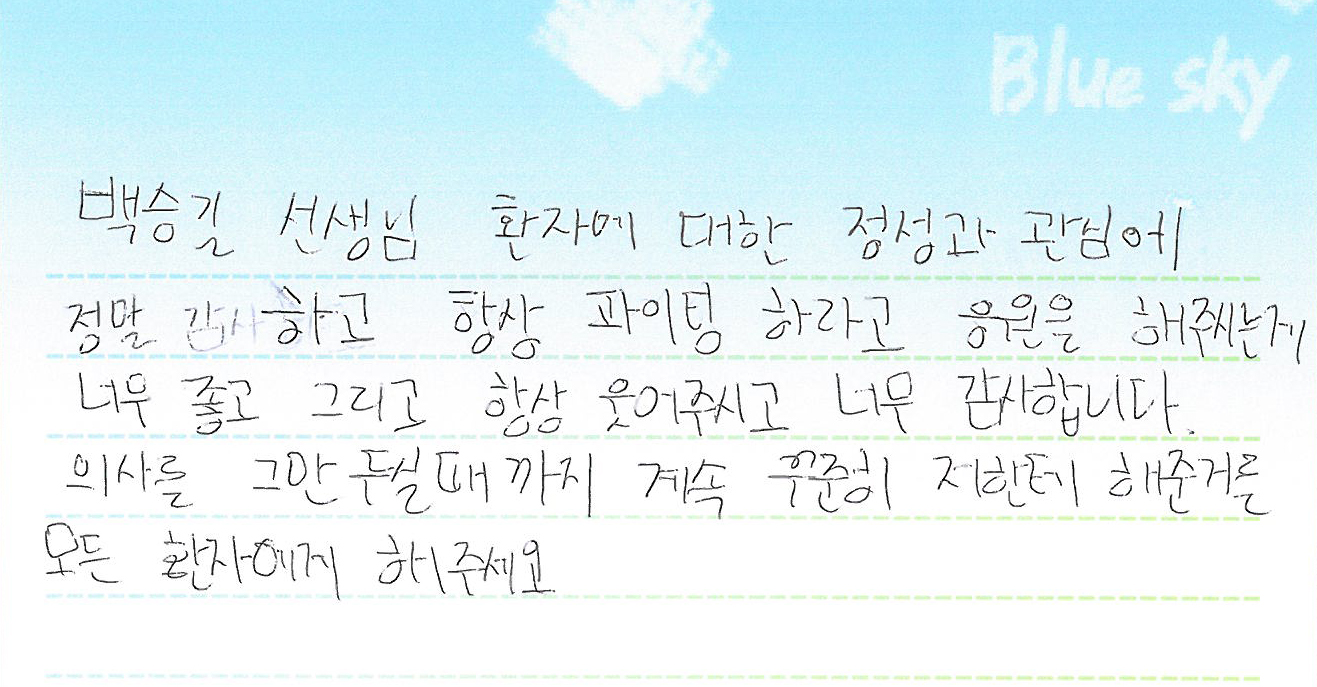 Blue sky
백승길 선생님 환자에 대한 정성과 관심에
정말 감사하고 항상 파이팅 하라고 응원을 해주시는게
너무 좋고 그리고 항상 웃어주시고 너무 감사합니다.
의사를 그만 두실때 까지 계속 꾸준히 저한테 해준거를
모든 환자에게 해주세요